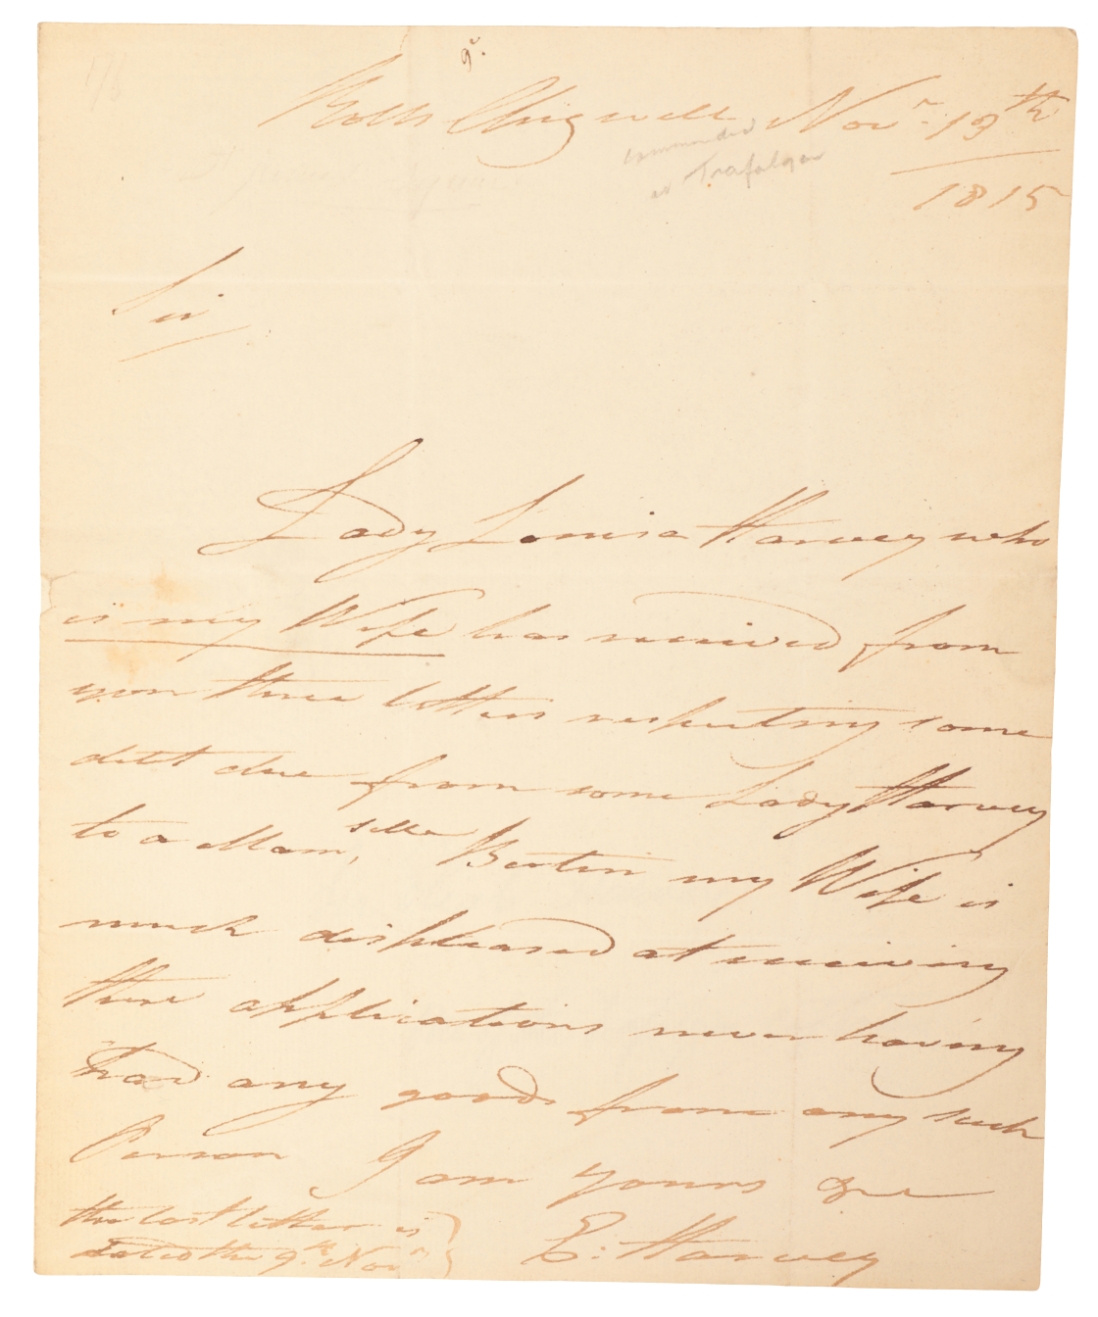 176
Rolls Chigwell Nov.r 19th
1815
commanded
at Trafalgar
Sir
Lady Louisa Harvey who
is my Wife has received from
you three letters respecting some
debt due from some Lady Harvey
to a Mam,selle Bertin my Wife is
much displeased at receiving
these applications never having
had any goods from any such
Person I am yours &c
E: Harvey
the last letter is
dated the 9th Nov.r